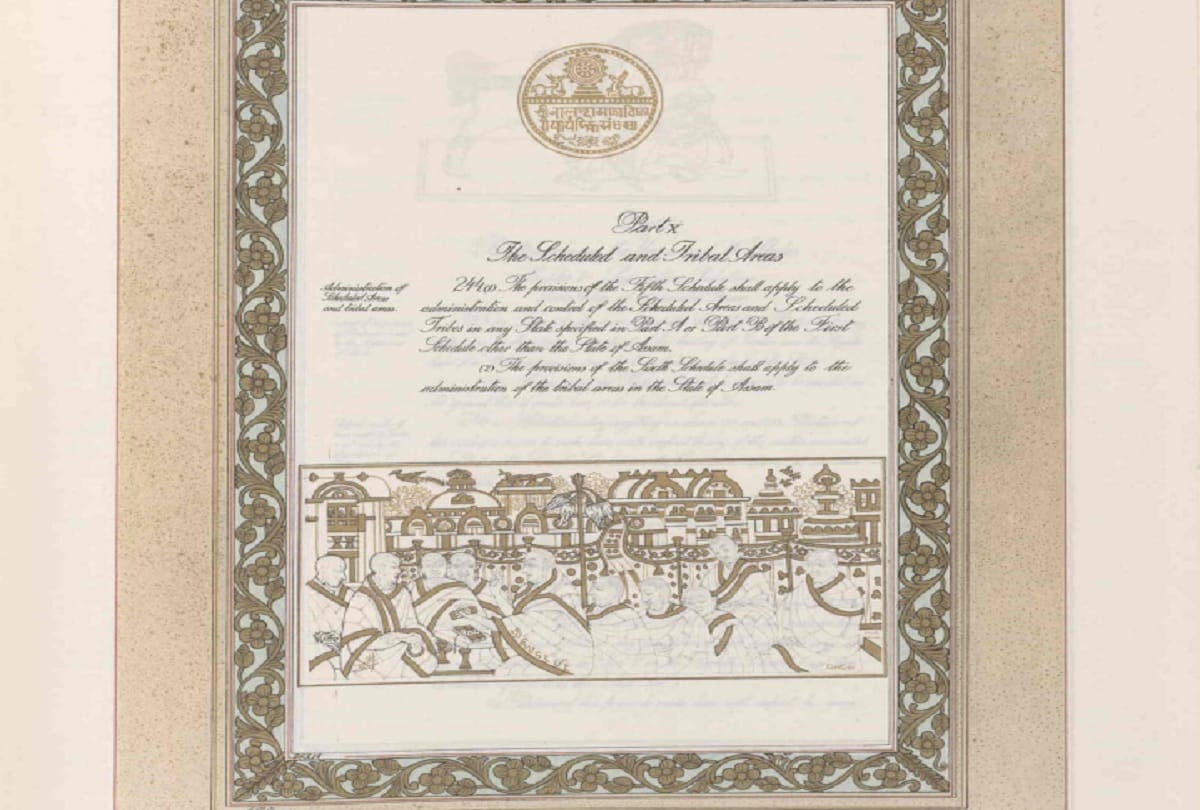 Part X
The Scheduled and Tribal Areas
Administration of
Scheduled Areas
and tribal areas.
244(1). The provisions of the Fifth Schedule shall apply to the
administration and control of the Scheduled Areas and Scheduled
Tribes in any State specified in Part A or Part B of the First
Schedule other than the State of Assam.
(2) The provisions of the Sixth Schedule shall apply to the
administration of the tribal areas in the State of Assam.